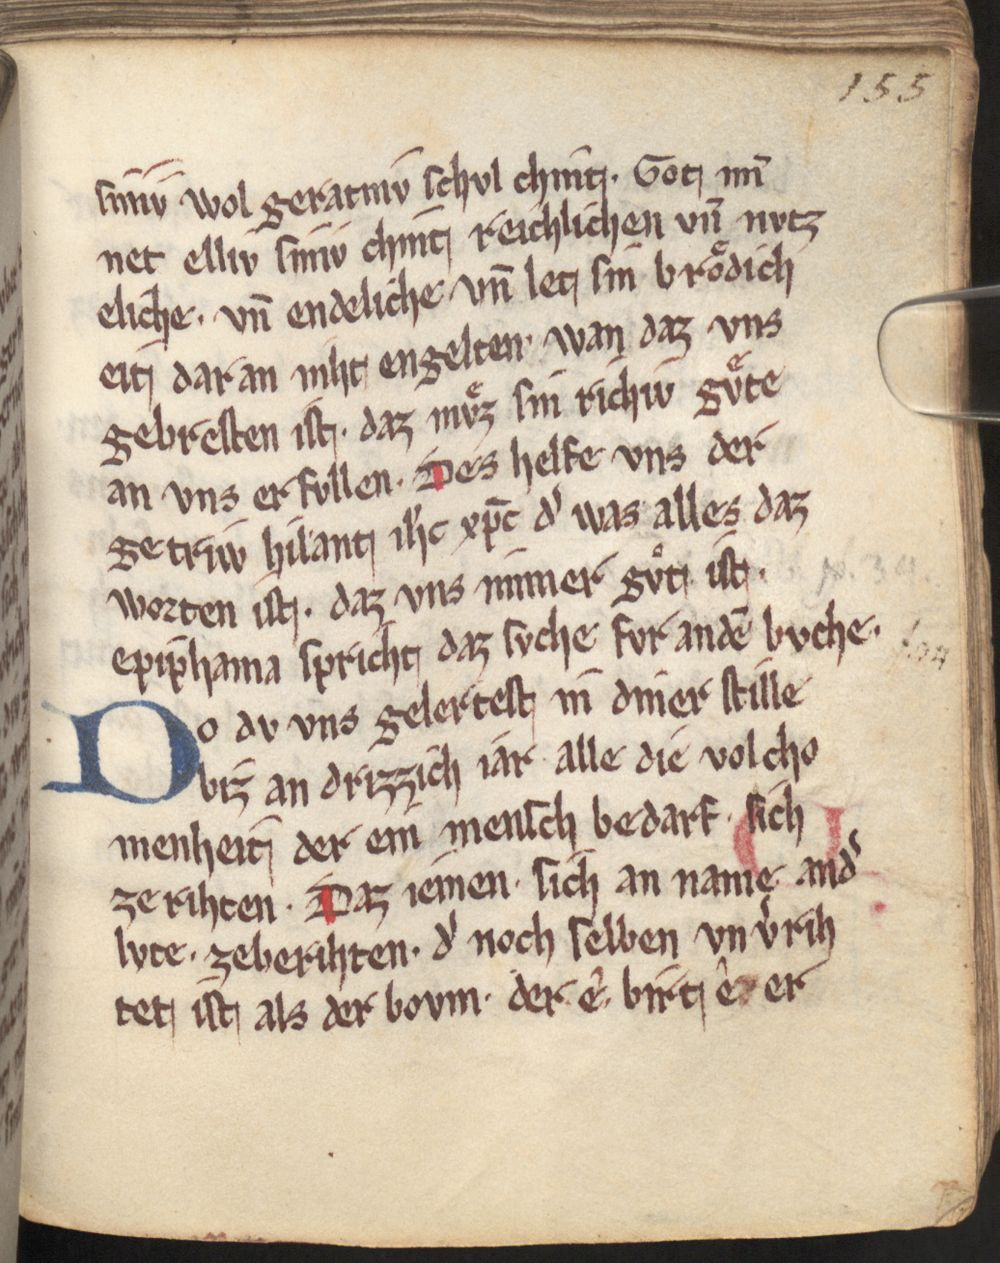 155
siniv wol geratniv schvl chint. Got mī
net elliv siniv chint reichlichen vn̄ nvtz
eliche. vn̄ endeliche. vn̄ let sin brodͤich
eit dar an niht engelten. wan daz vns
gebresten ist. daz mvͤz sin richiv gvͤte
an vns erfvllen. Des helfe vns der
getriw hilant ih̄c xp̄c d᾽ was alles daz
worten ist. daz vns immer gvͦt ist.
epip̄hania spricht daz svche fvr andē bvche.
Do dv vns gelertest in diner stille
biz an drizzich iar alle die volcho
menheit der ein mensch bedarf. sich
zerihten. Daz ieinen. sich an name and᾽
lvte. zeberihten. d᾽ noch selben vn v᾽rih
tet ist als der bovm. der ê. birt ê er